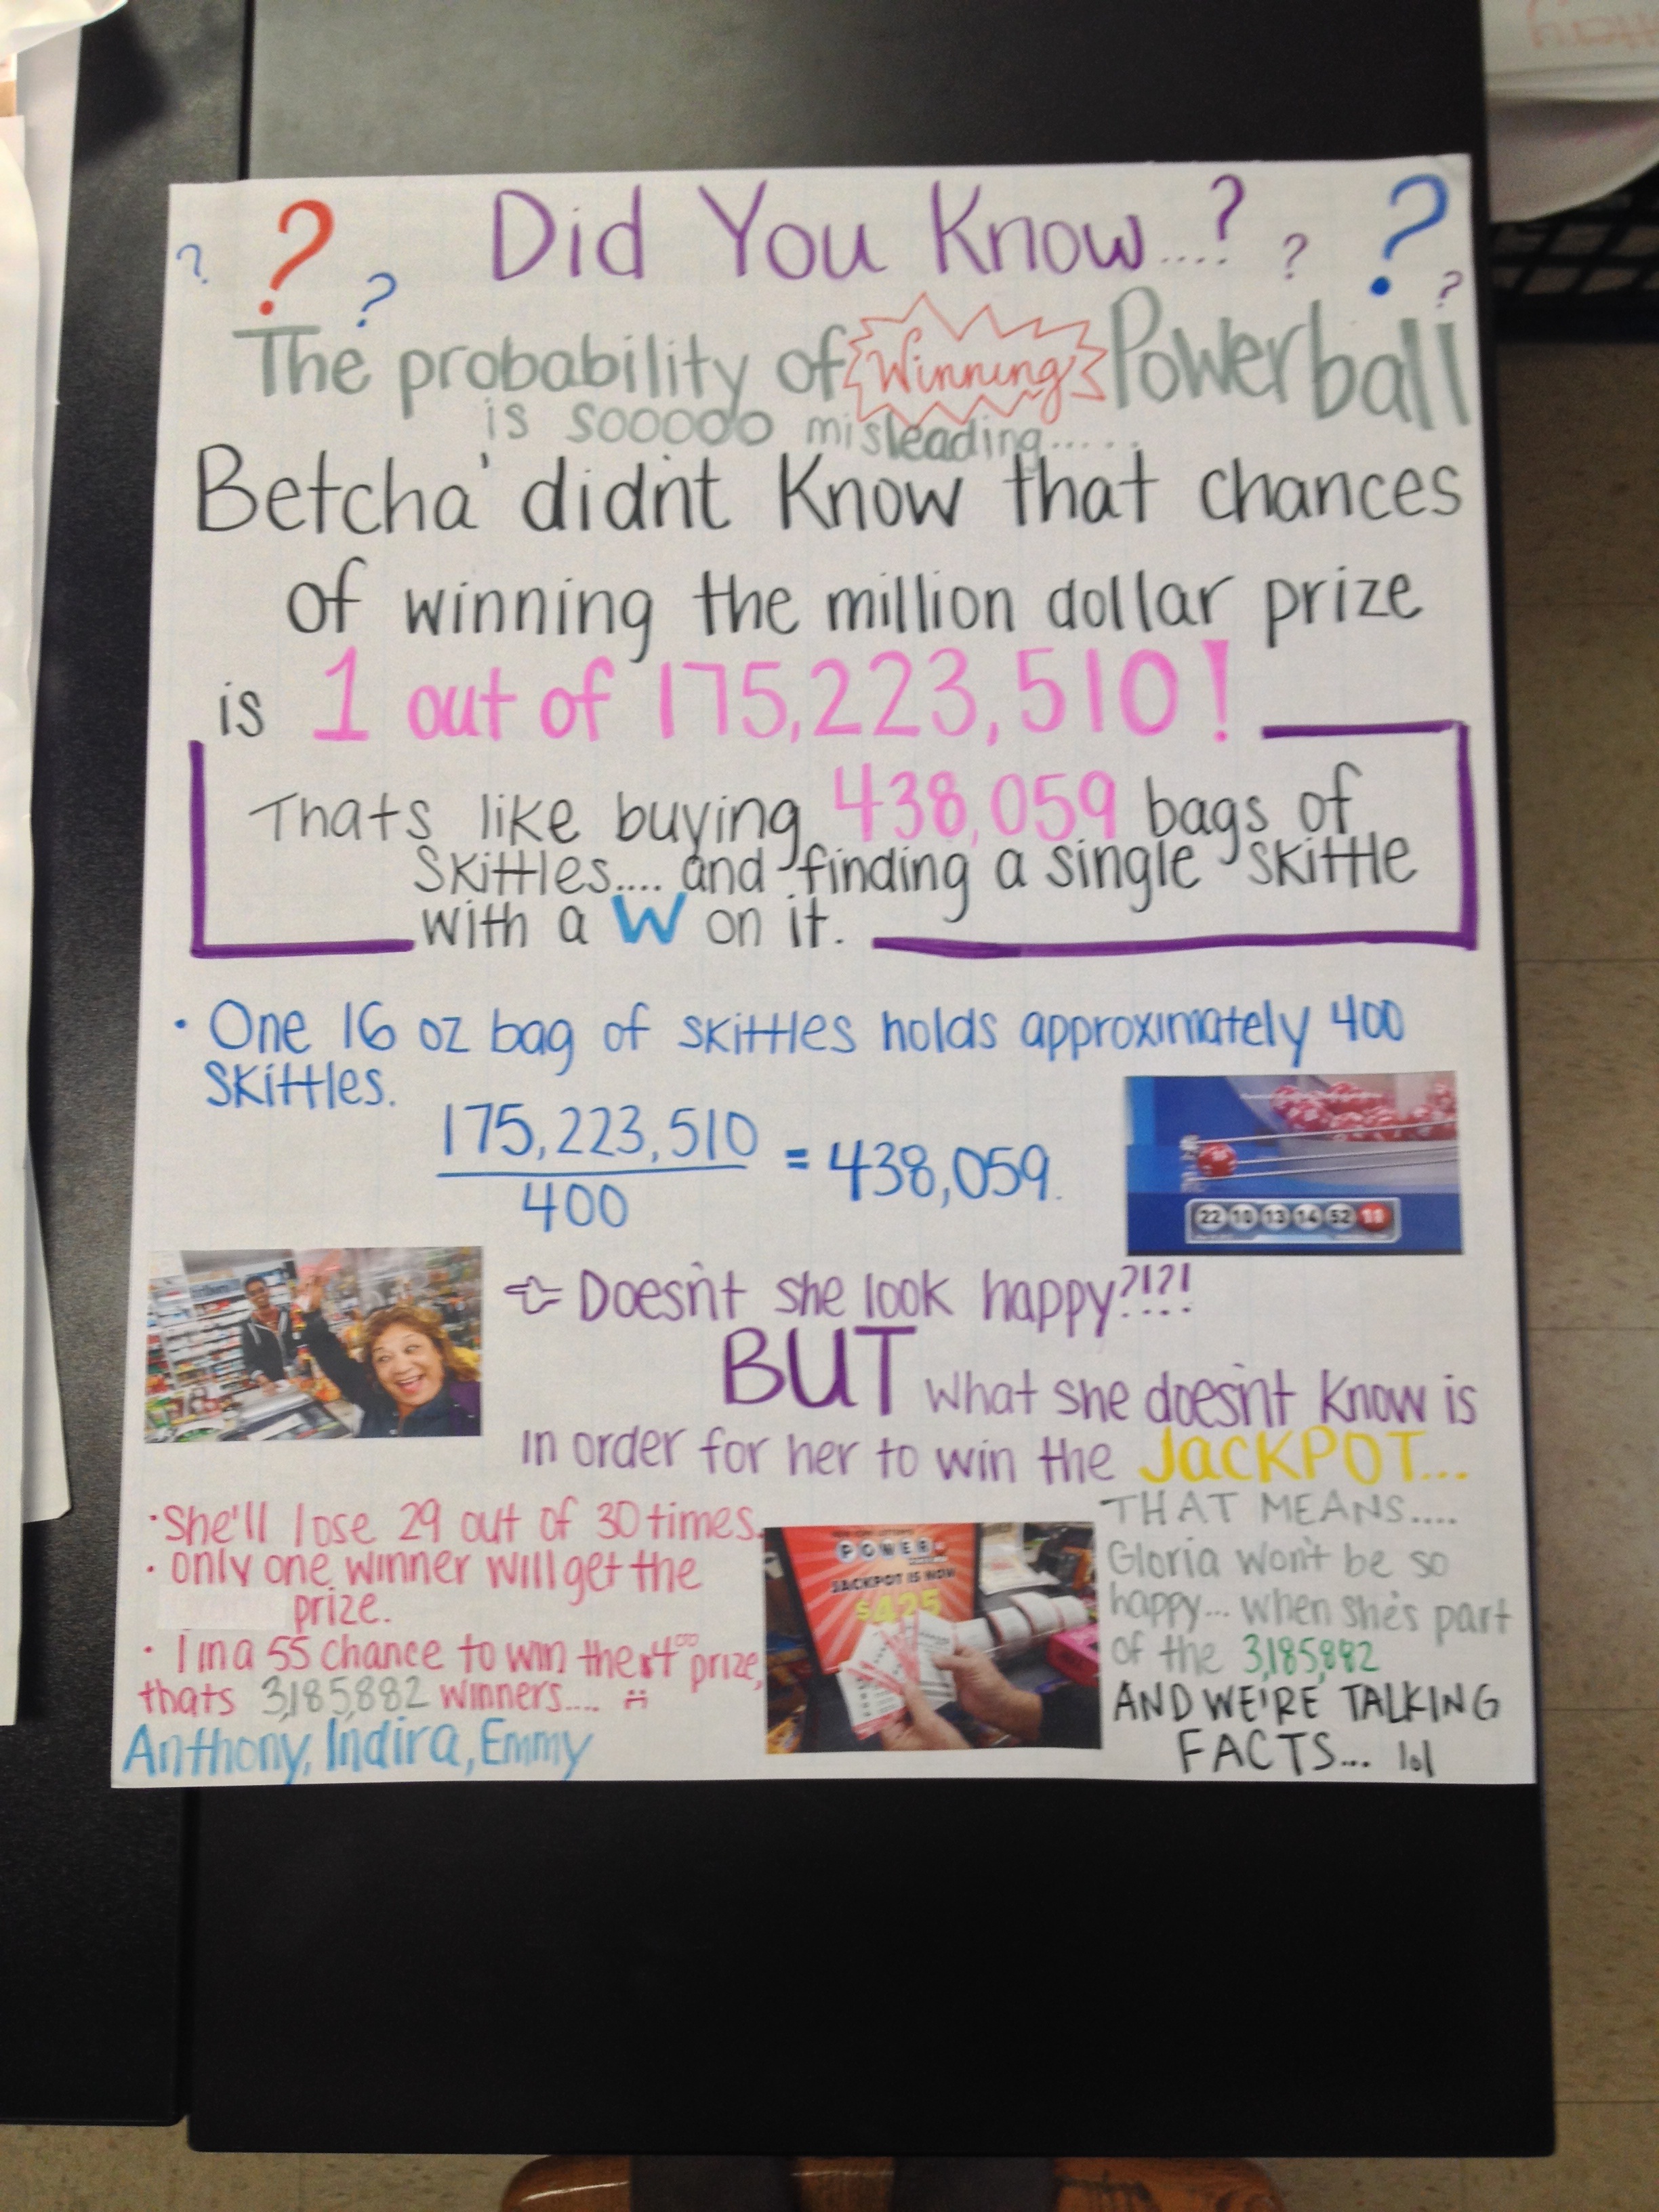 ? ? ? Did You Know....? ? ? ?
The probability of Winning Powerball
is sooooo misleading.....
Betcha' didn't Know that chances
of winning the million dollar prize
is 1 out of 175,223,510!
Thats like buying 438,059 bags of
Skittles.... and finding a single skittle
with a W on it.
• One 16 oz bag of skittles holds approximately 400
Skittles.
175,223,510
= 438,059.
400
22 10 13 14 52
Doesn't she look happy?!?!
BUT what she doesn't know is
in order for her to win the JACKPOT...
• She'll lose 29 out of 30 times.
• only one winner will get the
prize.
• 1 in a 55 chance to win the $4⁰⁰ prize,
thats 3,185,882 winners....
Anthony, Indira, Emmy
POWER
JACKPOT IS NOW
$425
THAT MEANS....
Gloria won't be so
happy... when she's part
of the 3,185,882
AND WE'RE TALKING
FACTS... lol